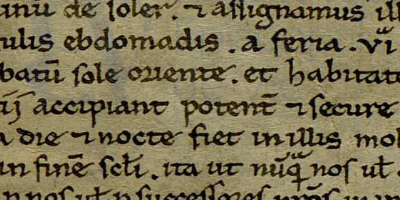 unū de soler. ⁊ assignamus ill
tulis ebdomadis. a feria. vi
batū sole oriente. et habitat
iij accipiant potent̄ ⁊ secure
a die ⁊ nocte fiet in illis mol
in finē scłi. ita ut nūq̄ nos uł.
nos uł successores